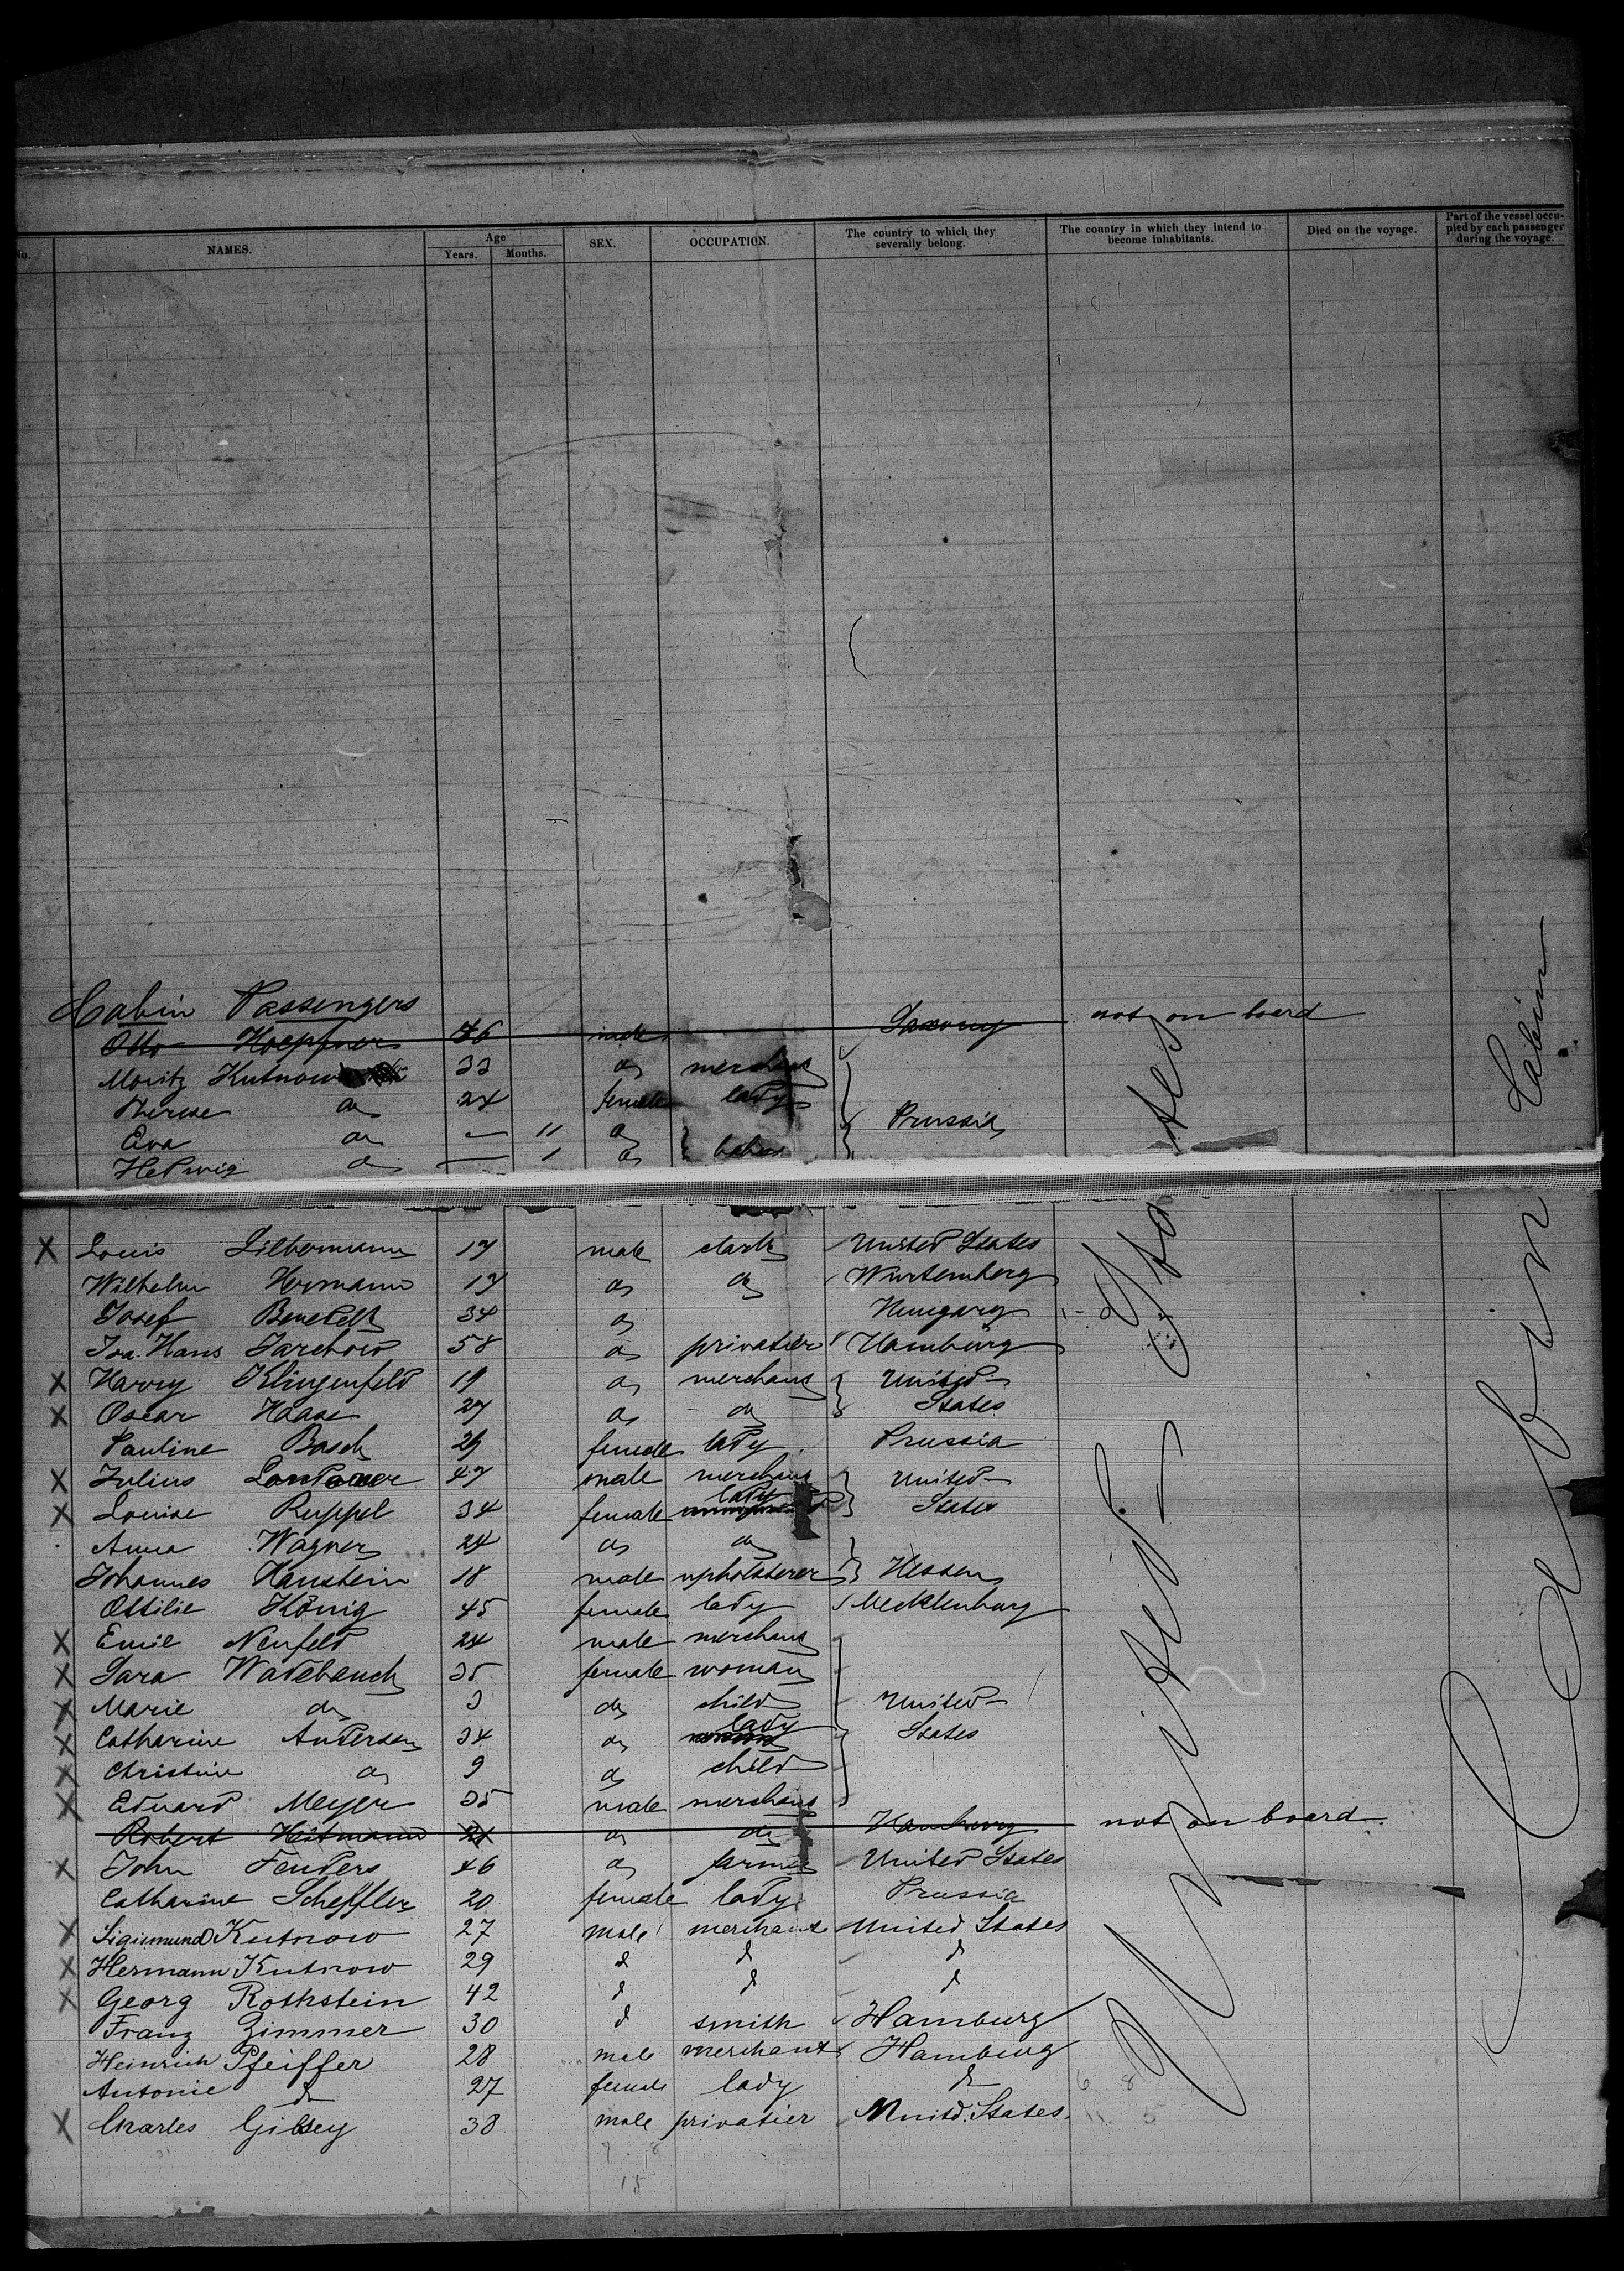 No. NAMES. Age Years. Months. SEX. OCCUPATION. The country to which they severally belong. The country in which they intend to become inhabitants. Died on the voyage. Part of the vessel occupied by each passenger during the voyage.
Cabin Passengers
Otto Hoepfner 46 male Saxony not on board
Moritz Kutnow 33 do merchant
Therese do 24 female lady Prussia
Eva do — 11 do
Hedwig do — 1 do babies
X Louis Silbermann 17 male clark United States
Wilhelm Hermann 17 do do Wurtemberg
Josef Benedikt 34 do Hungary
Joa. Hans Jarchow 58 do privatier Hamburg
X Harry Klingenfeld 19 do merchant United
X Oscar Haase 27 do do States
Pauline Bosch 26 female lady Prussia
X Julius Landauer 47 male merchant United
X Louise Ruppel 34 female lady States
Anna Wagner 24 do do
Johannes Hanstein 18 male upholsterer Hessen
Ottilie König 45 female lady Mecklenburg
X Emil Neufeld 24 male merchant
X Sara Wadebauch 35 female woman
X Marie do 3 do child United
X Catharine Andersen 34 do lady States
X Christine do 9 do child
X Eduard Meyer 35 male merchant
Robert Heitmann 21 do do Hamburg not on board.
X John Fenders 46 do farmer United States
Catharine Scheffler 20 female lady Prussia
X Sigismund Kutnow 27 male merchant United States
X Hermann Kutnow 29 d d d
X Georg Rothstein 42 d d d
Franz Zimmer 30 d smith Hamburg
Heinrich Pfeiffer 28 male merchant Hamburg
Antonie do 27 female lady do
X Charles Gilsey 38 male privatier Unitd. States.
United States
Cabin
Cabin
6 8
5
7 8
15